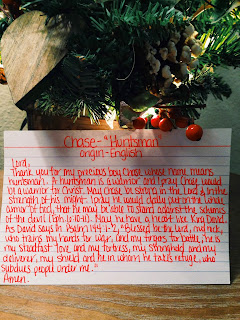 Chase - "Huntsman"
origin - English
Lord,
Thank you for my precious boy Chase whose name means
huntsman. A huntsman is a warrior and I pray Chase would
be a warrior for Christ. May Chase be strong in the Lord & in the
strength of his might. I pray he would daily put on the whole
armor of God, that he may be able to stand against the schemes
of the devil (Eph. 6:10-11). May he have a heart like King David.
As David says in Psalm 144:1-2, "Blessed be the Lord, my rock,
who trains my hands for war, and my fingers for battle; he is
my steadfast love and my fortress, my stronghold and my
deliverer, my shield and he in whom I take refuge, who
subdues people under me."
Amen.